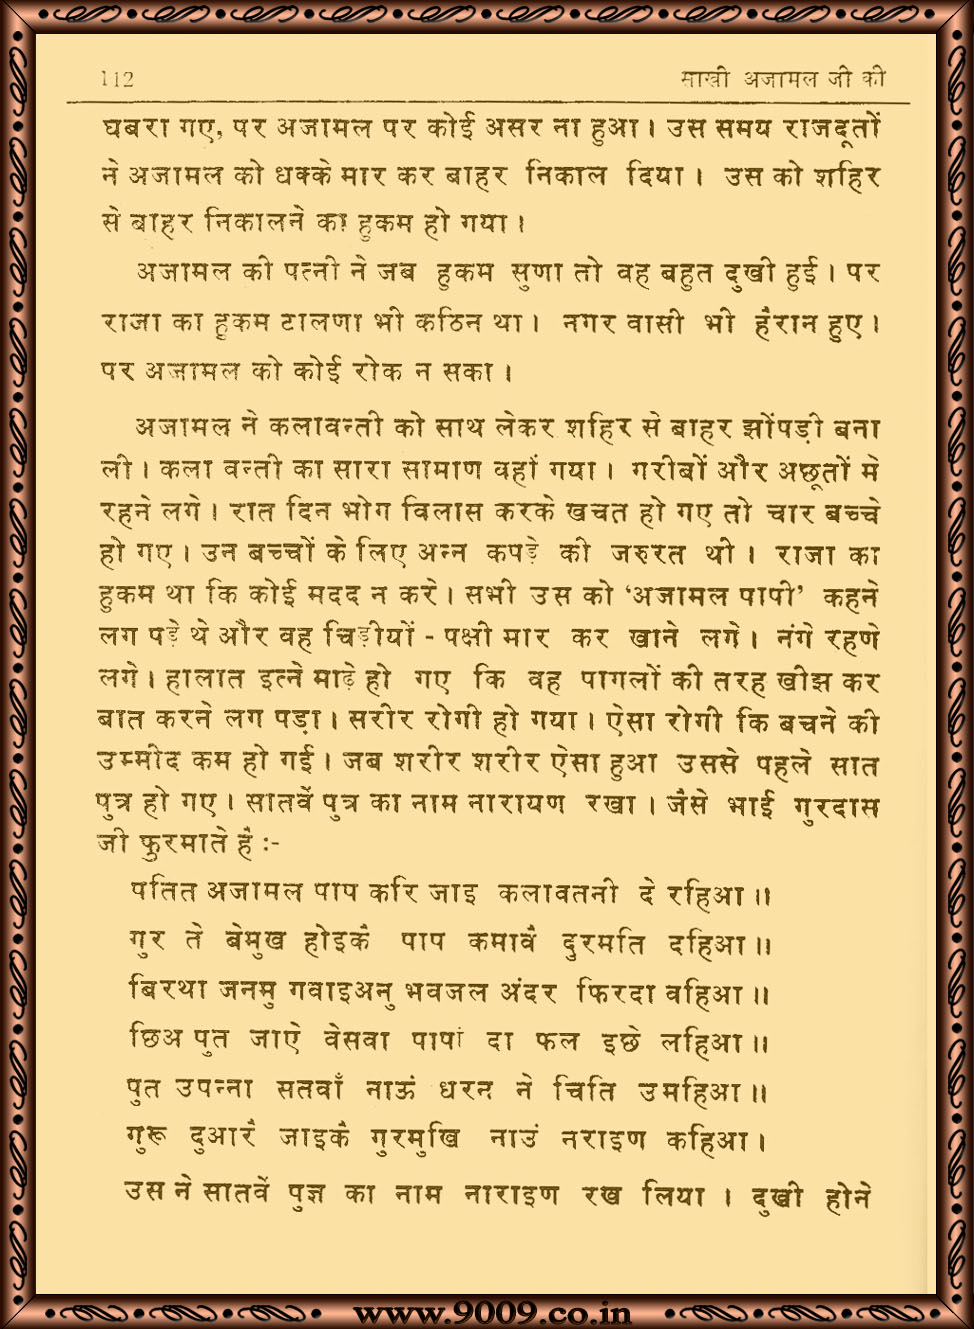 112 साखी अजामल जी की
घबरा गए, पर अजामल पर कोई असर ना हुआ। उस समय राजदूतों
ने अजामल को धक्के मार कर बाहर निकाल दिया। उस को शहिर
से बाहर निकालने का हुकम हो गया।
अजामल की पत्नी ने जब हुकम सुणा तो वह बहुत दुखी हुई। पर
राजा का हुकम टालणा भी कठिन था। नगर वासी भी हैरान हुए।
पर अजामल को कोई रोक न सका।
अजामल ने कलावन्ती को साथ लेकर शहिर से बाहर झोंपड़ी बना
ली। कला वन्ती का सारा सामाण वहाँ गया। गरीबों और अछूतों मे
रहने लगे। रात दिन भोग विलास करके खचत हो गए तो चार बच्चे
हो गए। उन बच्चों के लिए अन्न कपड़े की जरुरत थी। राजा का
हुकम था कि कोई मदद न करे। सभी उस को ‘अजामल पापी’ कहने
लग पड़े थे और वह चिड़ीयों - पक्षी मार कर खाने लगे। नंगे रहणे
लगे। हालात इत्ने माढ़े हो गए कि वह पागलों की तरह खीझ कर
बात करने लग पड़ा। सरीर रोगी हो गया। ऐसा रोगी कि बचने की
उम्मीद कम हो गई। जब शरीर शरीर ऐसा हुआ उससे पहले सात
पुत्र हो गए। सातवें पुत्र का नाम नारायण रखा। जैसे भाई गुरदास
जी फुरमाते है :-
पतित अजामल पाप करि जाइ कलावतनी दे रहिआ॥
गुर ते बेमुख होइकै पाप कमावै दुरमति दहिआ॥
बिरथा जनमु गवाइअनु भवजल अंदर फिरदा वहिआ॥
छिअ पुत जाऐ वेसवा पापां दा फल इछे लहिआ॥
पुत उपन्ना सतवाँ नाऊं धरन ने चिति उमहिआ॥
गुरू दुआरै जाइकै गुरमुखि नाउं नराइण कहिआ।
उस ने सातवें पुत्र का नाम नाराइण रख लिया। दुखी होने
www.9009.co.in